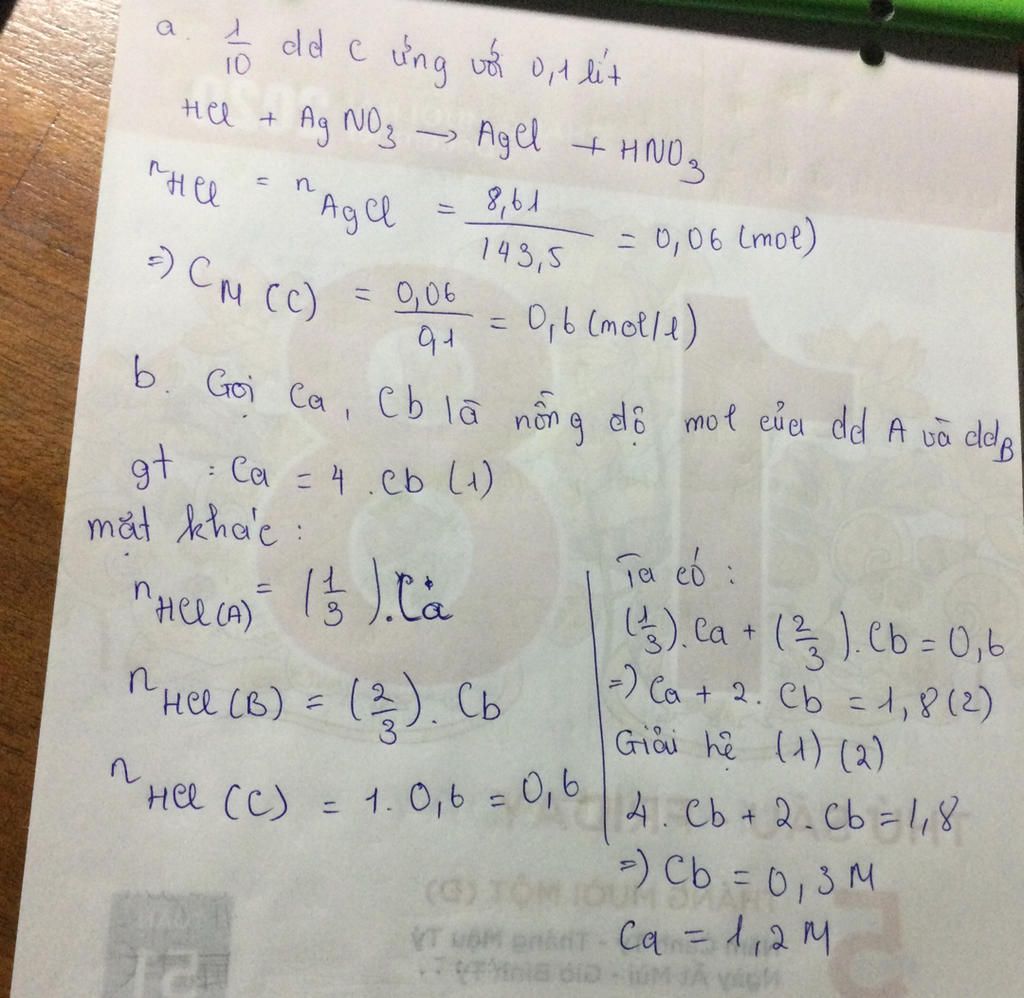 a. 1/10 dd C ứng với 0,1 lít
HCl + AgNO3 → AgCl + HNO3
nHCl = nAgCl = 8,61/143,5 = 0,06 (mol)
=> CM (C) = 0,06/0,1 = 0,6 (mol/l)
b. Gọi Ca, Cb là nồng độ mol của dd A và ddB
gt : Ca = 4 . Cb (1)
mặt khác :
nHCl(A) = (1/3).Ca
nHCl(B) = (2/3). Cb
nHCl (C) = 1. 0,6 = 0,6
Ta có :
(1/3).Ca + (2/3).Cb = 0,6
=> Ca + 2. Cb = 1,8 (2)
Giải hệ (1) (2)
4. Cb + 2. Cb = 1,8
=> Cb = 0,3 M
Ca = 1,2 M
81
THỨ SÁU FRIDAY
5
THÁNG MƯỜI MỘT (Đ)